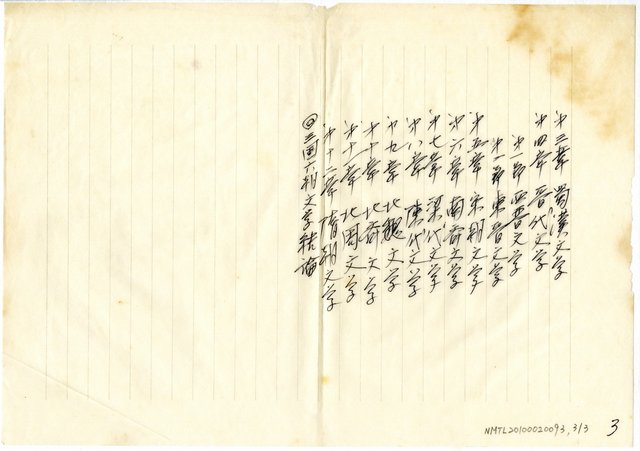 第三章 蜀漢文学
第四章 晋代文学
第一節 西晋文学
第二節 東晋文学
第五章 宋朝文学
第六章 南齐文学
第七章 梁代文学
第八章 陳代文学
第九章 北魏文学
第十章 北齐文学
第十一章 北周文学
第十二章 隋朝文学
◎三国六朝文学结論
NMTL20100020093, 3/3
3